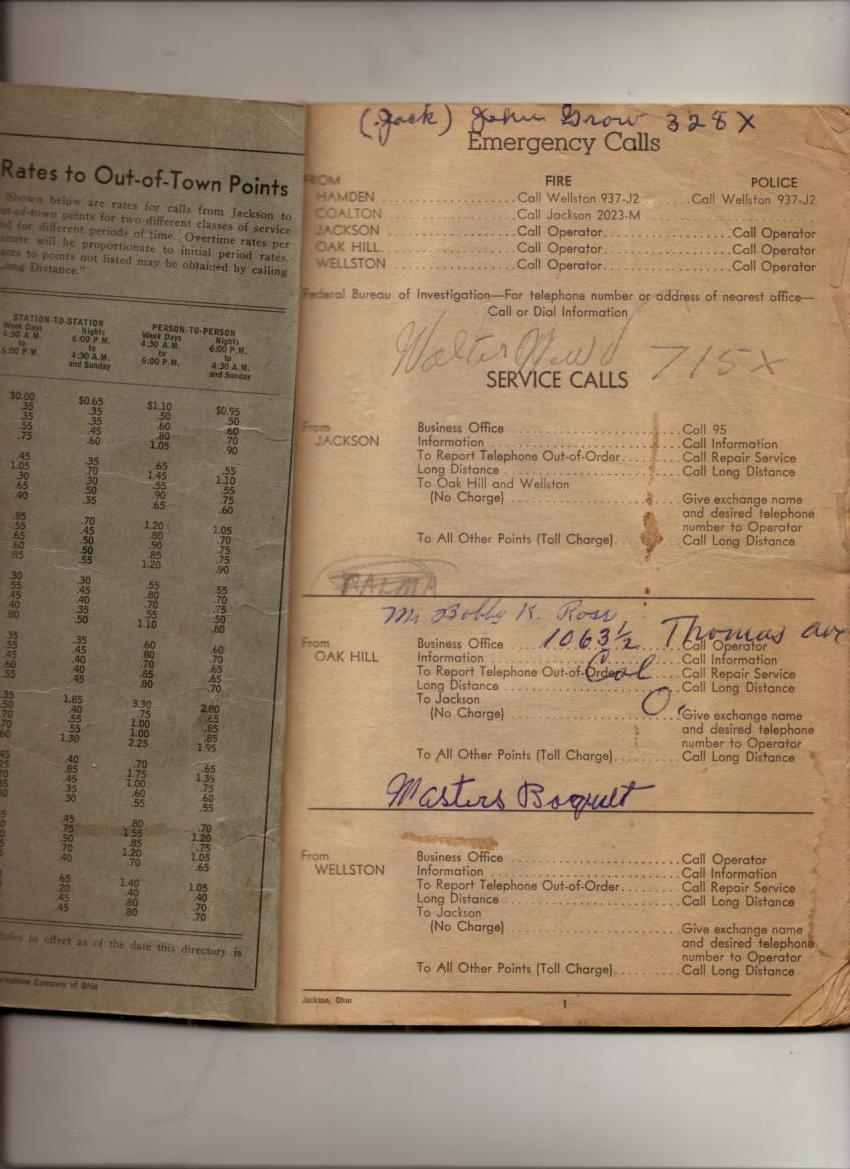 Rates to Out-of-Town Points
Shown below are rates for calls from Jackson to
out-of-town points for two different classes of service
and for different periods of time. Overtime rates per
minute will be proportionate to initial period rates.
Rates to points not listed may be obtained by calling
"Long Distance."
STATION-TO-STATION PERSON-TO-PERSON
Week Days Nights Week Days Nights
4:30 A.M. 6:00 P.M. 4:30 A.M. 6:00 P.M.
to to to to
6:00 P.M. 4:30 A.M. 6:00 P.M. 4:30 A.M.
and Sunday and Sunday
$0.80 $0.65 $1.10 $0.95
.35 .35 .50 .50
.35 .35 .60 .60
.55 .45 .80 .70
.75 .60 1.05 .90
.45 .35 .65 .55
1.05 .70 1.45 1.10
.30 .30 .55 .55
.65 .50 .90 .75
.40 .35 .65 .60
.85 .70 1.20 1.05
.55 .45 .80 .70
.65 .50 .90 .75
.60 .50 .85 .75
.85 .55 1.20 .90
.30 .30 .55 .55
.55 .45 .80 .70
.45 .40 .70 .75
.40 .35 .55 .50
.80 .50 1.10 .80
.35 .35 .60 .60
.55 .45 .80 .70
.45 .40 .70 .65
.60 .40 .85 .65
.55 .45 .80 .70
1.85 3.30 2.80
.40 .75 .65
.55 1.00 .85
.55 1.00 .85
1.30 2.25 1.95
.40 .70 .65
.85 1.75 1.35
.45 1.00 .75
.35 .60 .60
.30 .55 .55
.45 .80 .70
.75 1.55 1.20
.50 .85 .75
.70 1.20 1.05
.40 .70 .65
.65 1.40 1.05
.20 .40 .40
.45 .80 .70
.45 .80 .70
in effect as of the date this directory is
Telephone Company of Ohio
(Jack) John Grow 328X
Emergency Calls
FROM FIRE POLICE
HAMDEN Call Wellston 937-J2 Call Wellston 937-J2
COALTON Call Jackson 2023-M
JACKSON Call Operator Call Operator
OAK HILL Call Operator Call Operator
WELLSTON Call Operator Call Operator
Federal Bureau of Investigation—For telephone number or address of nearest office—
Call or Dial Information
Walter 715X
SERVICE CALLS
From JACKSON
Business Office Call 95
Information Call Information
To Report Telephone Out-of-Order Call Repair Service
Long Distance Call Long Distance
To Oak Hill and Wellston
(No Charge) Give exchange name
and desired telephone
number to Operator
To All Other Points (Toll Charge) Call Long Distance
Mr Bobby K. Ross
1063½ Thomas ave
Col
O.
From OAK HILL
Business Office Call Operator
Information Call Information
To Report Telephone Out-of-Order Call Repair Service
Long Distance Call Long Distance
To Jackson
(No Charge) Give exchange name
and desired telephone
number to Operator
To All Other Points (Toll Charge) Call Long Distance
Masters Boqult
From WELLSTON
Business Office Call Operator
Information Call Information
To Report Telephone Out-of-Order Call Repair Service
Long Distance Call Long Distance
To Jackson
(No Charge) Give exchange name
and desired telephone
number to Operator
To All Other Points (Toll Charge) Call Long Distance
Jackson, Ohio 1